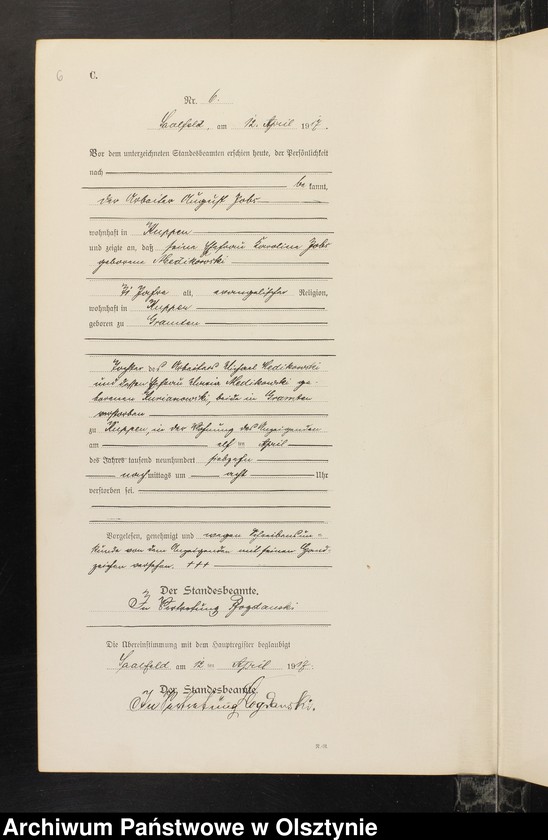 6
C.
Nr. 6.
Saalfeld, am 12. April 1917.
Vor dem unterzeichneten Standesbeamten erschien heute, der Persönlichkeit
nach
be kannt,
der Arbeiter August Jobs
wohnhaft in Kuppen
und zeigte an, daß seine Ehefrau Karoline Jobs
geborene Medikowski
Jahre alt, evangelischer Religion,
wohnhaft in Kuppen
geboren zu Gramten
Tochter des Arbeiters Michael Medikowski
und dessen Ehefrau Medikowski ge-
borenen Kurianowski, beide in Gramten
verstorben
zu Kuppen, in der Wohnung des Anzeigenden
am elf ten April
des Jahres tausend neunhundert siebzehn
nachmittags um acht Uhr
verstorben sei.
Vorgelesen, genehmigt und wegen Schreibensun-
kunde von dem Anzeigenden mit seinem Hand-
zeichen versehen. +++
Der Standesbeamte.
In Vertretung Bogdanski
Die Übereinstimmung mit dem Hauptregister beglaubigt
Saalfeld am 12 ten April 1917.
Der Standesbeamte
In Vertretung Bogdanski.
Archiwum Państwowe w Olsztynie